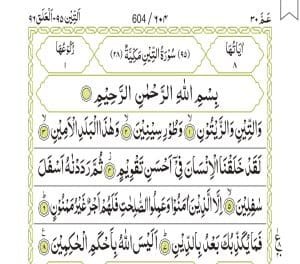 التين ٩٥ - العلق ٩٦ 604 / ٦٠٤ عم ٣٠
اٰيَاتُهَا ٨ (٩٥) سُوْرَةُ التِّيْنِ مَكِّيَّةٌ (٢٨) رُكُوْعُهَا ١
بِسْمِ اللّٰهِ الرَّحْمٰنِ الرَّحِيْمِ
وَالتِّيْنِ وَالزَّيْتُوْنِ ۙ﴿١﴾ وَطُوْرِ سِيْنِيْنَ ۙ﴿٢﴾ وَهٰذَا الْبَلَدِ الْاَمِيْنِ ۙ﴿٣﴾
لَقَدْ خَلَقْنَا الْاِنْسَانَ فِيْۤ اَحْسَنِ تَقْوِيْمٍ ۫﴿٤﴾ ثُمَّ رَدَدْنٰهُ اَسْفَلَ
سٰفِلِيْنَ ۙ﴿٥﴾ اِلَّا الَّذِيْنَ اٰمَنُوْا وَعَمِلُوا الصّٰلِحٰتِ فَلَهُمْ اَجْرٌ غَيْرُ مَمْنُوْنٍ ؕ﴿٦﴾
فَمَا يُكَذِّبُكَ بَعْدُ بِالدِّيْنِ ؕ﴿٧﴾ اَلَيْسَ اللّٰهُ بِاَحْكَمِ الْحٰكِمِيْنَ ﴿٨﴾